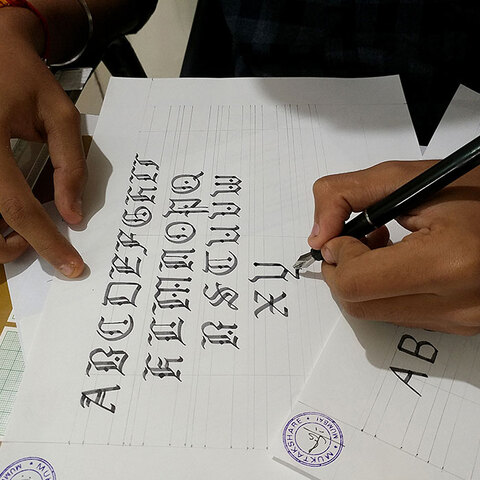 ABCDEFGHIJ
KLMNOPQ
RSTUVW
XY
AB
MUKTAKSHARE • MUMBAI •
MUK